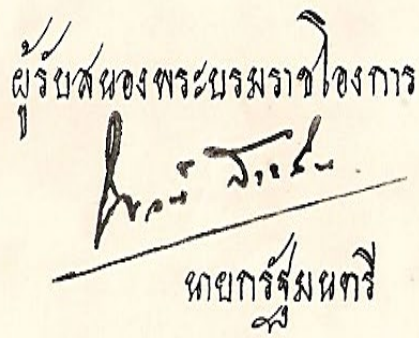 ผู้รับสนองพระบรมราชโองการ
นายกรัฐมนตรี